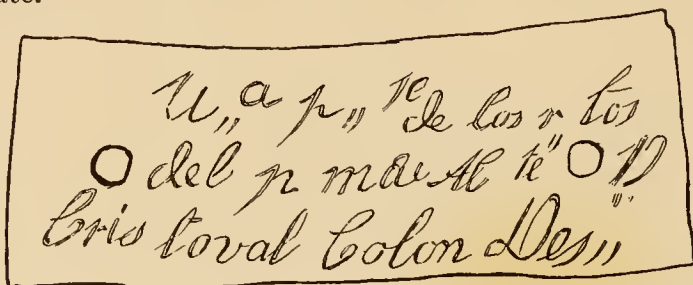 U,,a p,,te de los r tos
del p mer Al te" D
Cristoval Colon Des,,